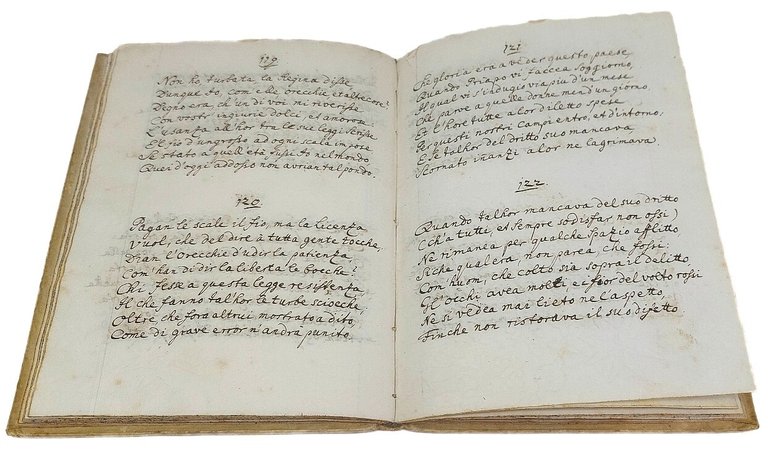 119
Non ho turbata la Regina disse
Dunque Io, com'e che orecchie et alte core?
Degno era ch'un di voi mi riverisse
Con vostr'ingiurie dolci, et amorose
L'usanza all'hor tra le sue leggi scrisse
E'l fio d'un grosso ad ogni scala impose
Se stato a quell'età fussi Io nel mondo
Quei d'oggi addosso non avrian tal pondo.
120
Pagan le scale il fio, ma la licenza
Vuol, che del dire à tutta gente tocche,
Dian l'Orecchie d'udir la patienza,
Com'han di dir la libertà le bocche:
Chi fesse a questa legge resistenza
Il che fanno tal'hor le turbe sciocche,
Oltre, che fora altrui mostrato a dito,
Come di grave error n'andrà punito.
121
Che gloria era a veder questo paese
Quando Priapo vi facea soggiorno,
Il qual vi s'indugiò via piu d'un mese
Che parve a quelle donne men d'un giorno
Et l'hore tutte a lor diletto spese
Per questi nostri campi entro, et d'intorno,
E se talhor del dritto suo mancava
Scornato inanzi a lor ne lagrimava.
122.
Quando talhor mancava del suo dritto
(Ch'a tutti, et sempre sodisfar non ossi)
Ne rimanea per qualche spazio afflitto
Si che qual era non parea, che fossi:
Com huom, che colto sia sopra il delitto
Gl'occhi avea molli, e i fior del volto rossi
Ne si vedea mai lieto ne l'aspetto,
Finche non ristorava il suo difetto